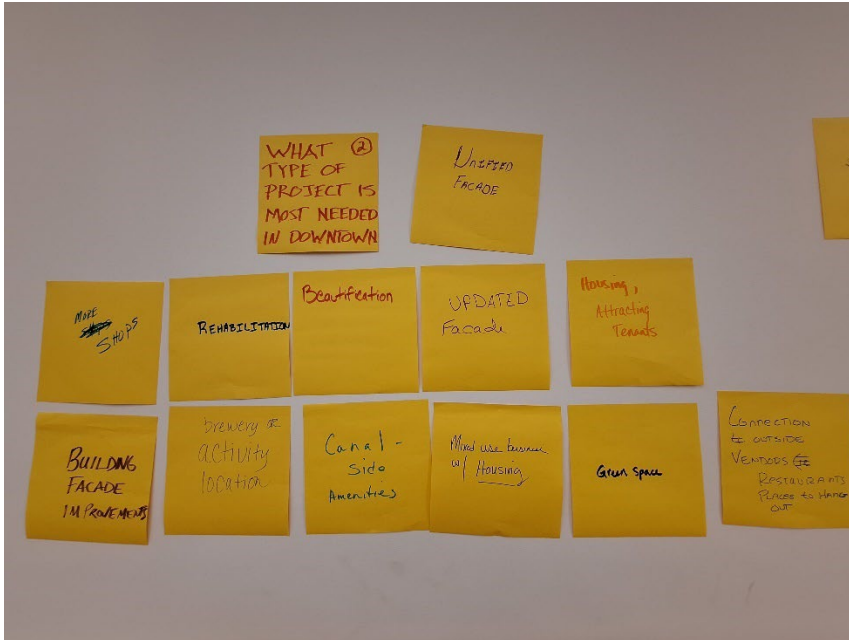 WHAT ②
TYPE OF
PROJECT IS
MOST NEEDED
IN DOWNTOWN
UNIFIED
FACADE
MORE
SHOPS
REHABILITATION
Beautification
UPDATED
Facade
Housing,
Attracting
Tenants
BUILDING
FACADE
IMPROVEMENTS
brewery or
activity
location
Canal-
Side
Amenities
Mixed use business
w/ Housing
Green space
CONNECTION
to OUTSIDE
VENDORS
RESTAURANTS
PLACES to HANG
OUT